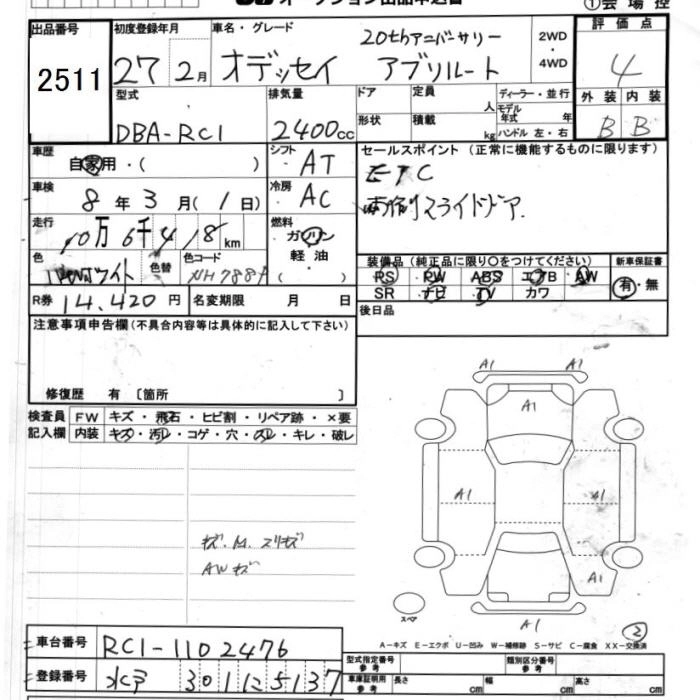 ①会場控
出品番号 初度登録年月 車名・グレード 評価点
2511
27 2月 オデッセイ 20thアニバーサリー アブソルート
2WD・4WD
4
型式 排気量 ドア 定員 人 ディーラー・並行
外装 内装
DBA-RC1 2400cc 形状 積載 kg モデル年式 年 ハンドル 左・右
B B
車歴 自家用・( ) シフト AT
セールスポイント (正常に機能するものに限ります)
ETC
両側スライドドア
車検 8年3月(1日) 冷房 AC
走行 10万6千418km 燃料 ガソリン 軽油 ( )
色 ホワイト 色替 色コード NH788P
装備品(純正品に限り〇をつけてください) 新車保証書
PS PW ABS エアB AW 有・無
SR ナビ TV カワ
R券 14,420円 名変期限 月 日
後日品
注意事項申告欄(不具合内容等は具体的に記入して下さい)
修復歴 有 [箇所 ]
検査員記入欄 FW キズ・飛石・ヒビ割・リペア跡・×要
内装 キズ・汚レ・コゲ・穴・スレ・キレ・破レ
A1 A1
A1
A1 A1
A1
キズ.M.スリキズ
AWキズ
スペア
A1
②
A-キズ E-エクボ U-凹み W-補修跡 S-サビ C-腐食 XX-交換済
車台番号 RC1-1102476
型式指定番号 参考 類別区分番号 参考
登録番号 水戸 301 5137
車庫証明用 参考 長さ cm 幅 cm 高さ cm